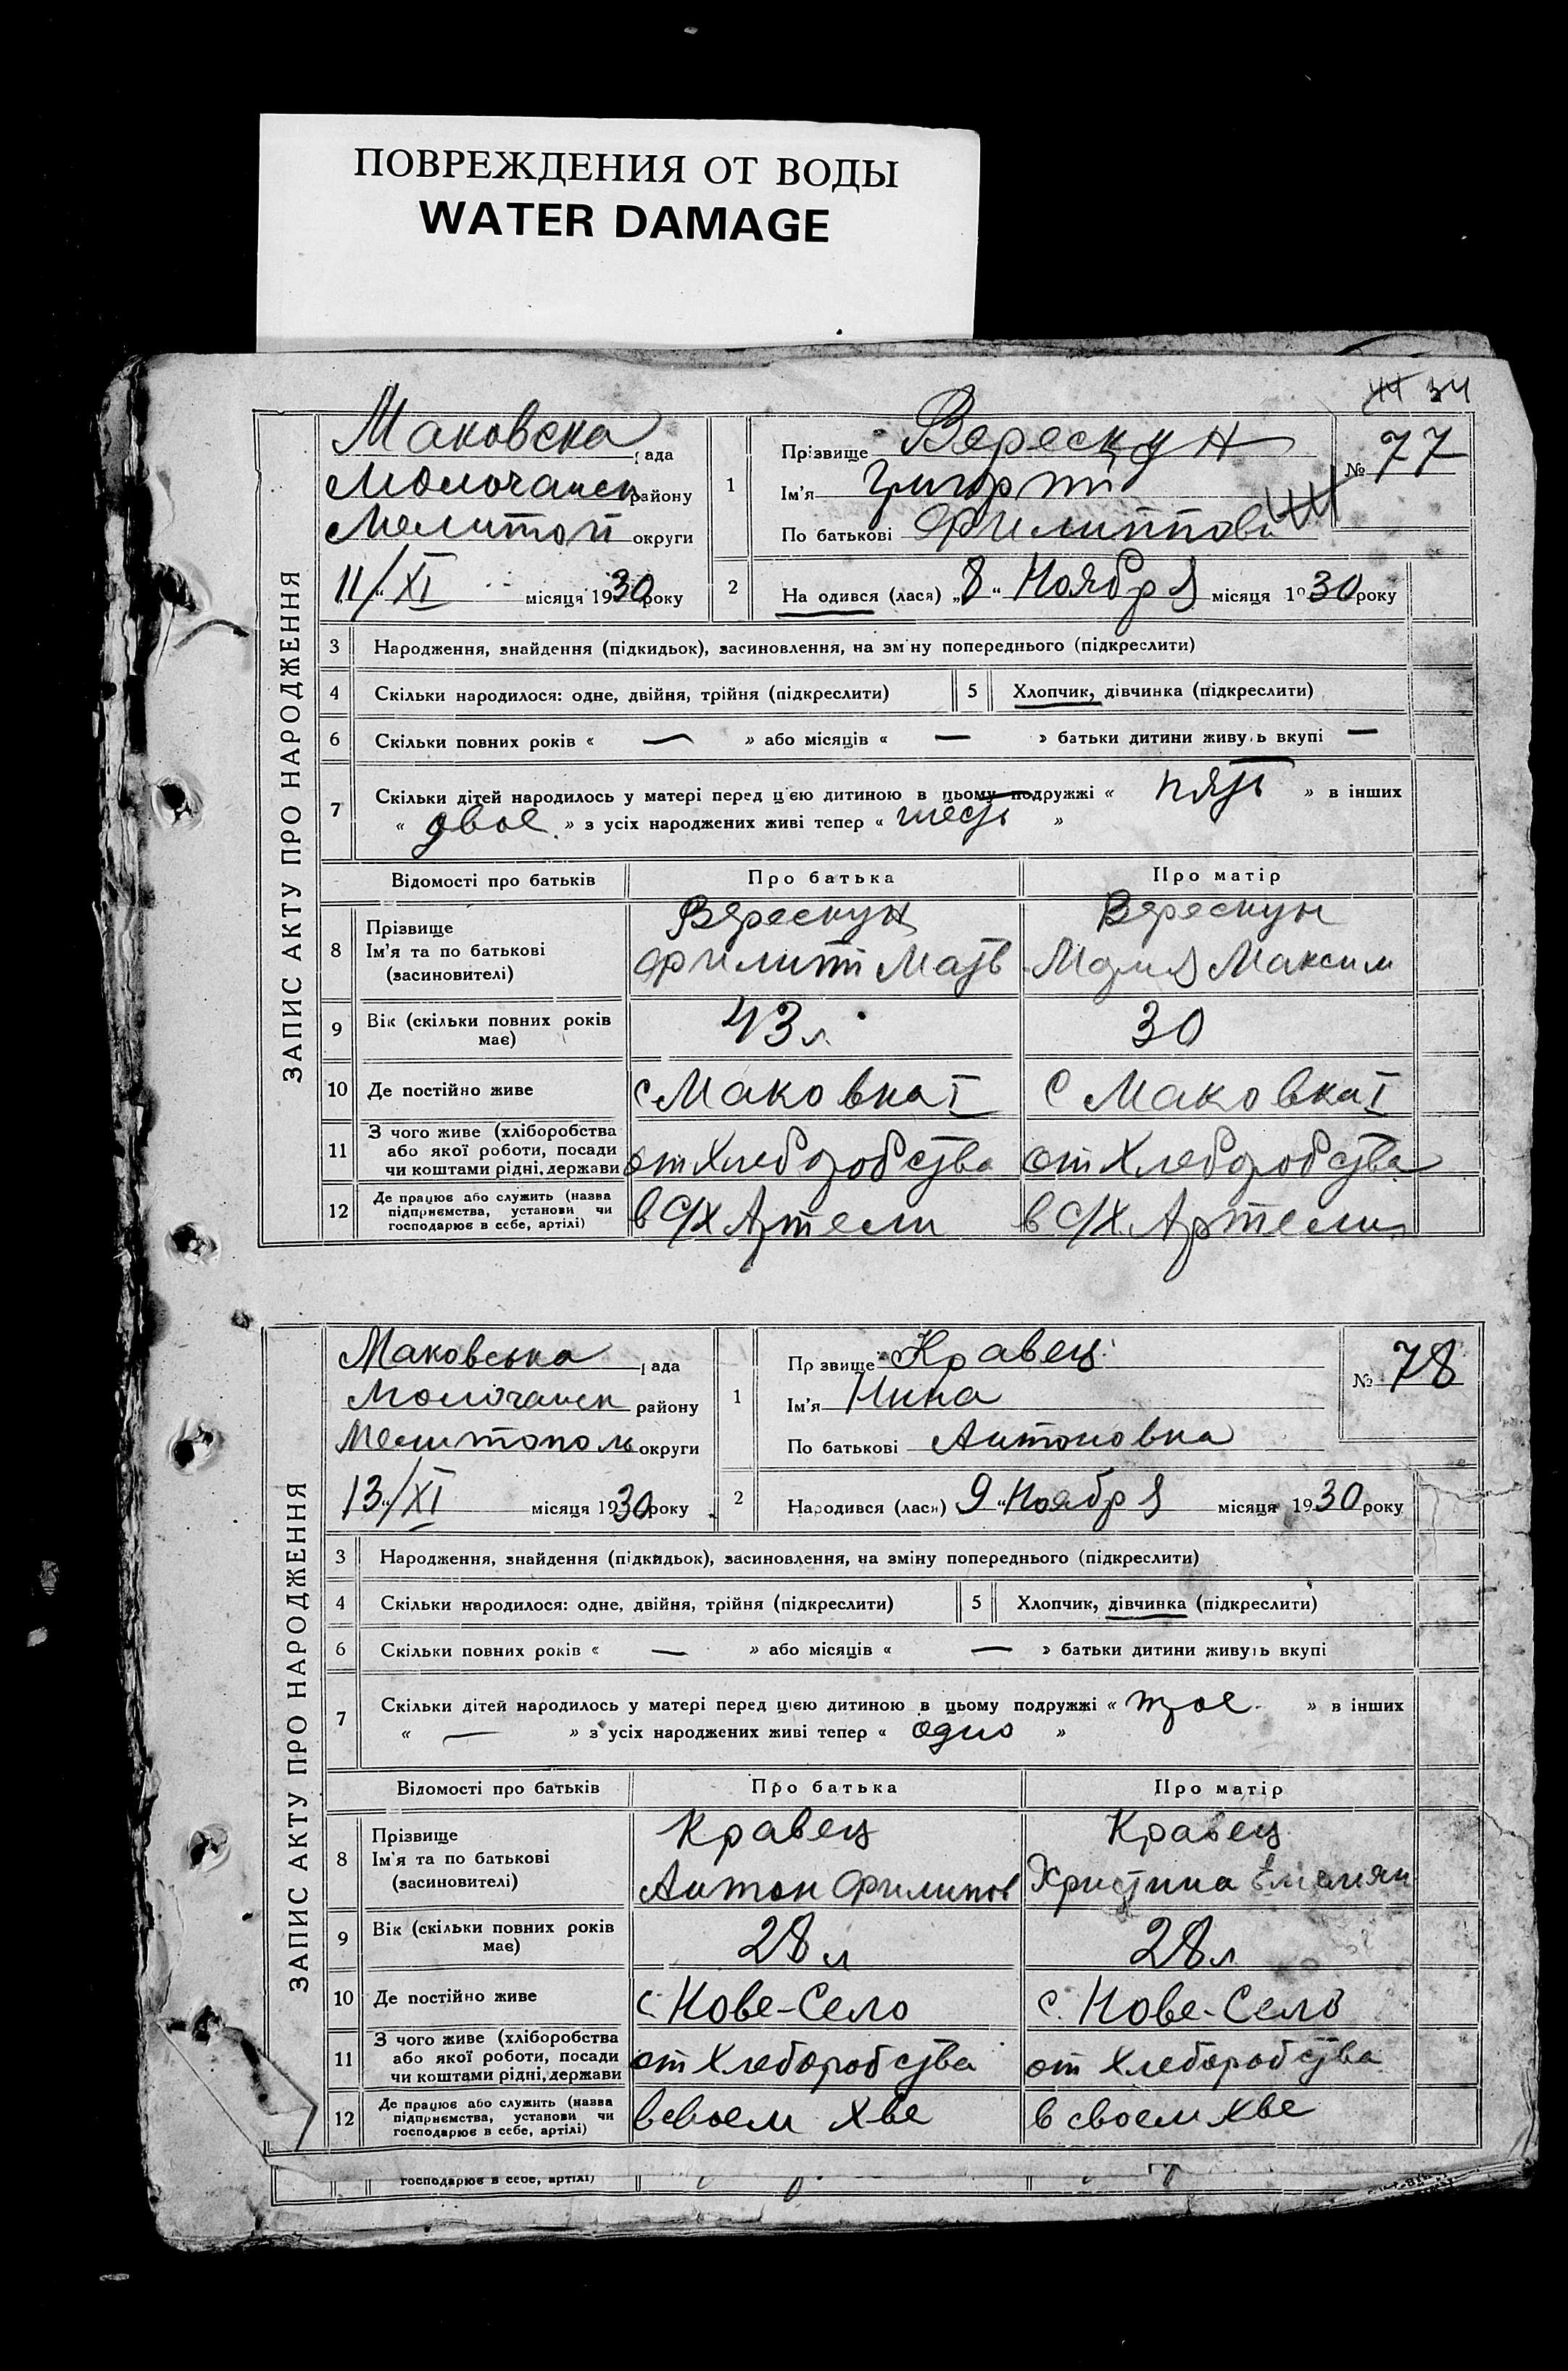 ПОВРЕЖДЕНИЯ ОТ ВОДЫ
WATER DAMAGE
44 34
ЗАПИС АКТУ ПРО НАРОДЖЕННЯ
Маковска рада
Молочанск району
Мелитоп округи
11/XI місяця 1930 року
1
Прізвище Верескун
Ім'я Григорий
По батькові Филиппови
№ 77
2
Народився (лася) „8" Ноября місяця 1930 року
3 Народження, знайдення (підкидьок), засиновлення, на зміну попереднього (підкреслити)
4 Скільки народилося: одне, двійня, трійня (підкреслити) 5 Хлопчик, дівчинка (підкреслити)
6 Скільки повних років « — » або місяців « — » батьки дитини живуть вкупі —
7 Скільки дітей народилось у матері перед цією дитиною в цьому подружжі « пять » в інших
« двое » з усіх народжених живі тепер « шесть »
Відомості про батьків Про батька Про матір
8 Прізвище
Ім'я та по батькові
(засиновителі)
Верескун
Филипп Матв
Верескун
Мария Максим
9 Вік (скільки повних років
має)
43 л.
30
10 Де постійно живе с Маковка I с Маковка I
11 З чого живе (хліборобства
або якої роботи, посади
чи коштами рідні, держави
от Хлеборобства от Хлеборобства
12 Де працює або служить (назва
підприємства, установи чи
господарює в себе, артілі)
в С/Х Артели в С/Х. Артели
ЗАПИС АКТУ ПРО НАРОДЖЕННЯ
Маковська рада
Молочанск району
Мелитополь округи
13/XI місяця 1930 року
1
Прізвище Кравец
Ім'я Нина
По батькові Антоновна
№ 78
2
Народився (лася) 9 "Ноября місяця 1930 року
3 Народження, знайдення (підкидьок), засиновлення, на зміну попереднього (підкреслити)
4 Скільки народилося: одне, двійня, трійня (підкреслити) 5 Хлопчик, дівчинка (підкреслити)
6 Скільки повних років « — » або місяців « — » батьки дитини живуть вкупі
7 Скільки дітей народилось у матері перед цією дитиною в цьому подружжі « трое » в інших
« — » з усіх народжених живі тепер « одно »
Відомості про батьків Про батька Про матір
8 Прізвище
Ім'я та по батькові
(засиновителі)
Кравец
Антон Филипов
Кравец
Христина Емелиян
9 Вік (скільки повних років
має)
28 л
28 л
10 Де постійно живе с. Нове-Село с. Нове-Село
11 З чого живе (хліборобства
або якої роботи, посади
чи коштами рідні, держави
от Хлеборобства от Хлеборобства
12 Де працює або служить (назва
підприємства, установи чи
господарює в себе, артілі)
в своем хве в своем хве
господарює в себе, артілі)